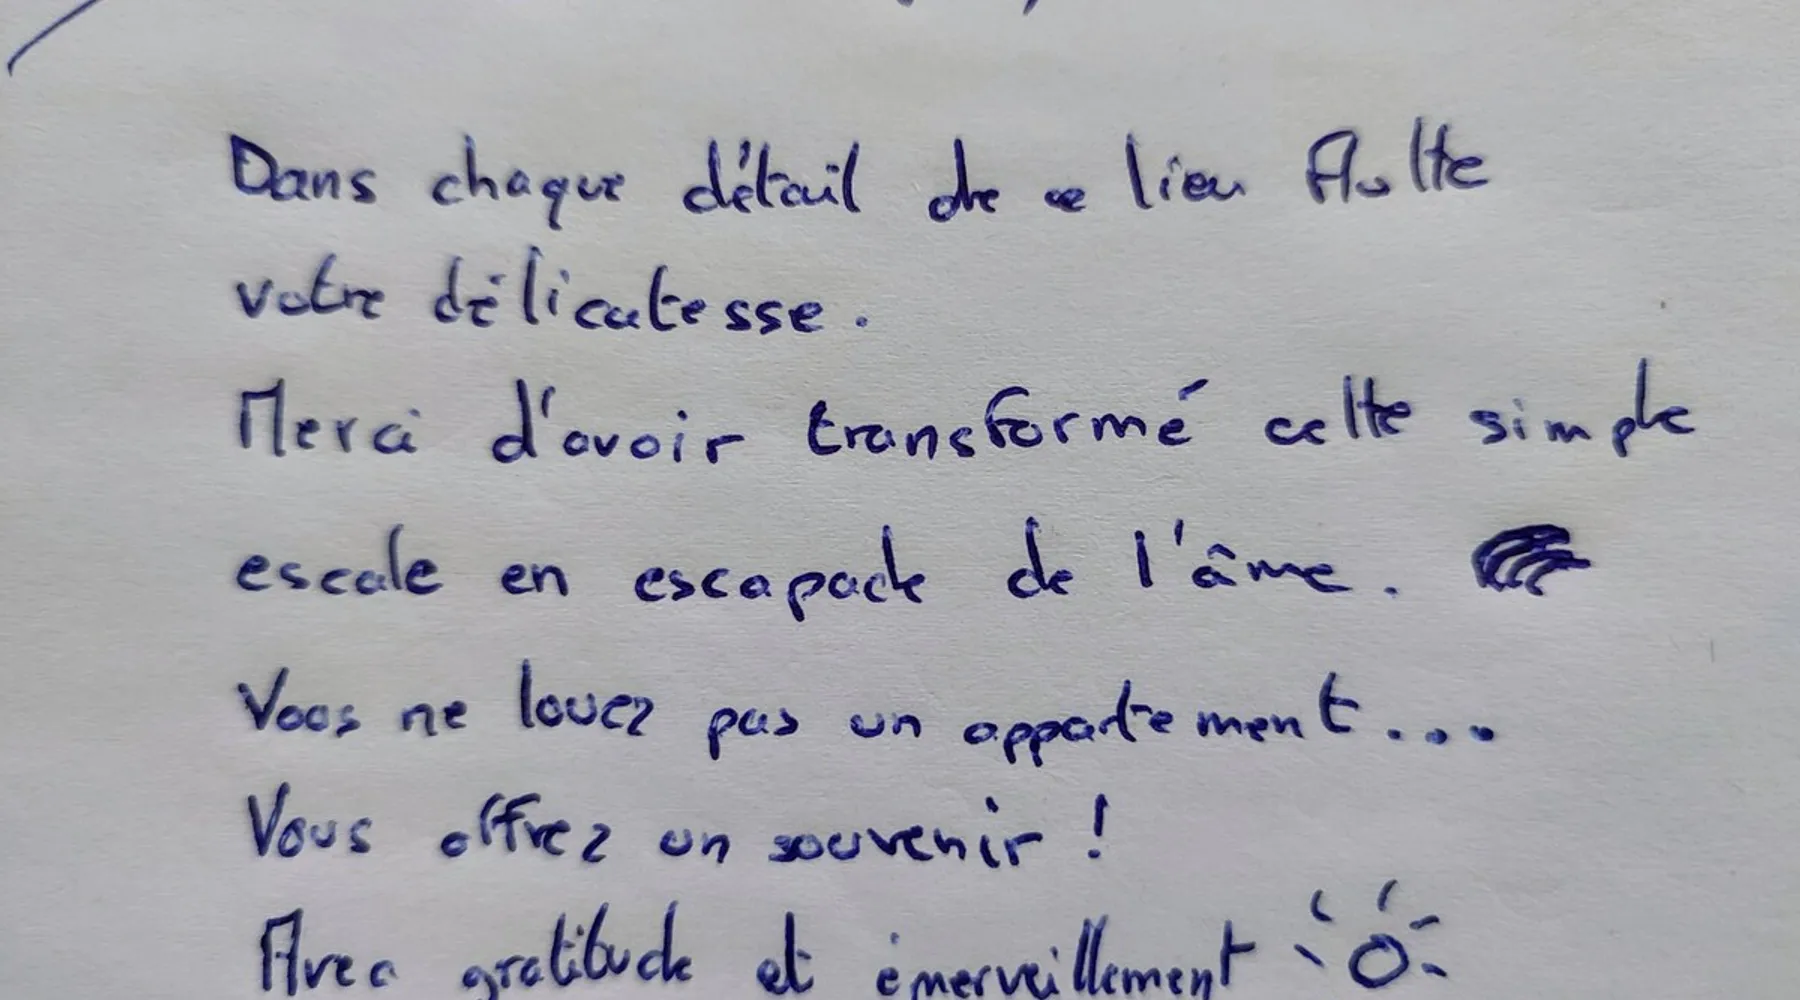 Dans chaque détail de ce lieu flotte
votre délicatesse.
Merci d'avoir transformé cette simple
escale en escapade de l'âme.
Vous ne louez pas un appartement...
Vous offrez un souvenir !
Avec gratitude et émerveillement